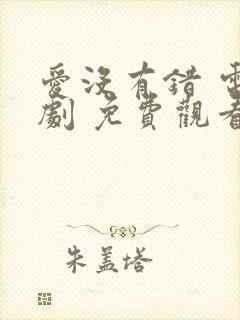 愛沒有錯 電
劇 免費觀看
朱蓋塔